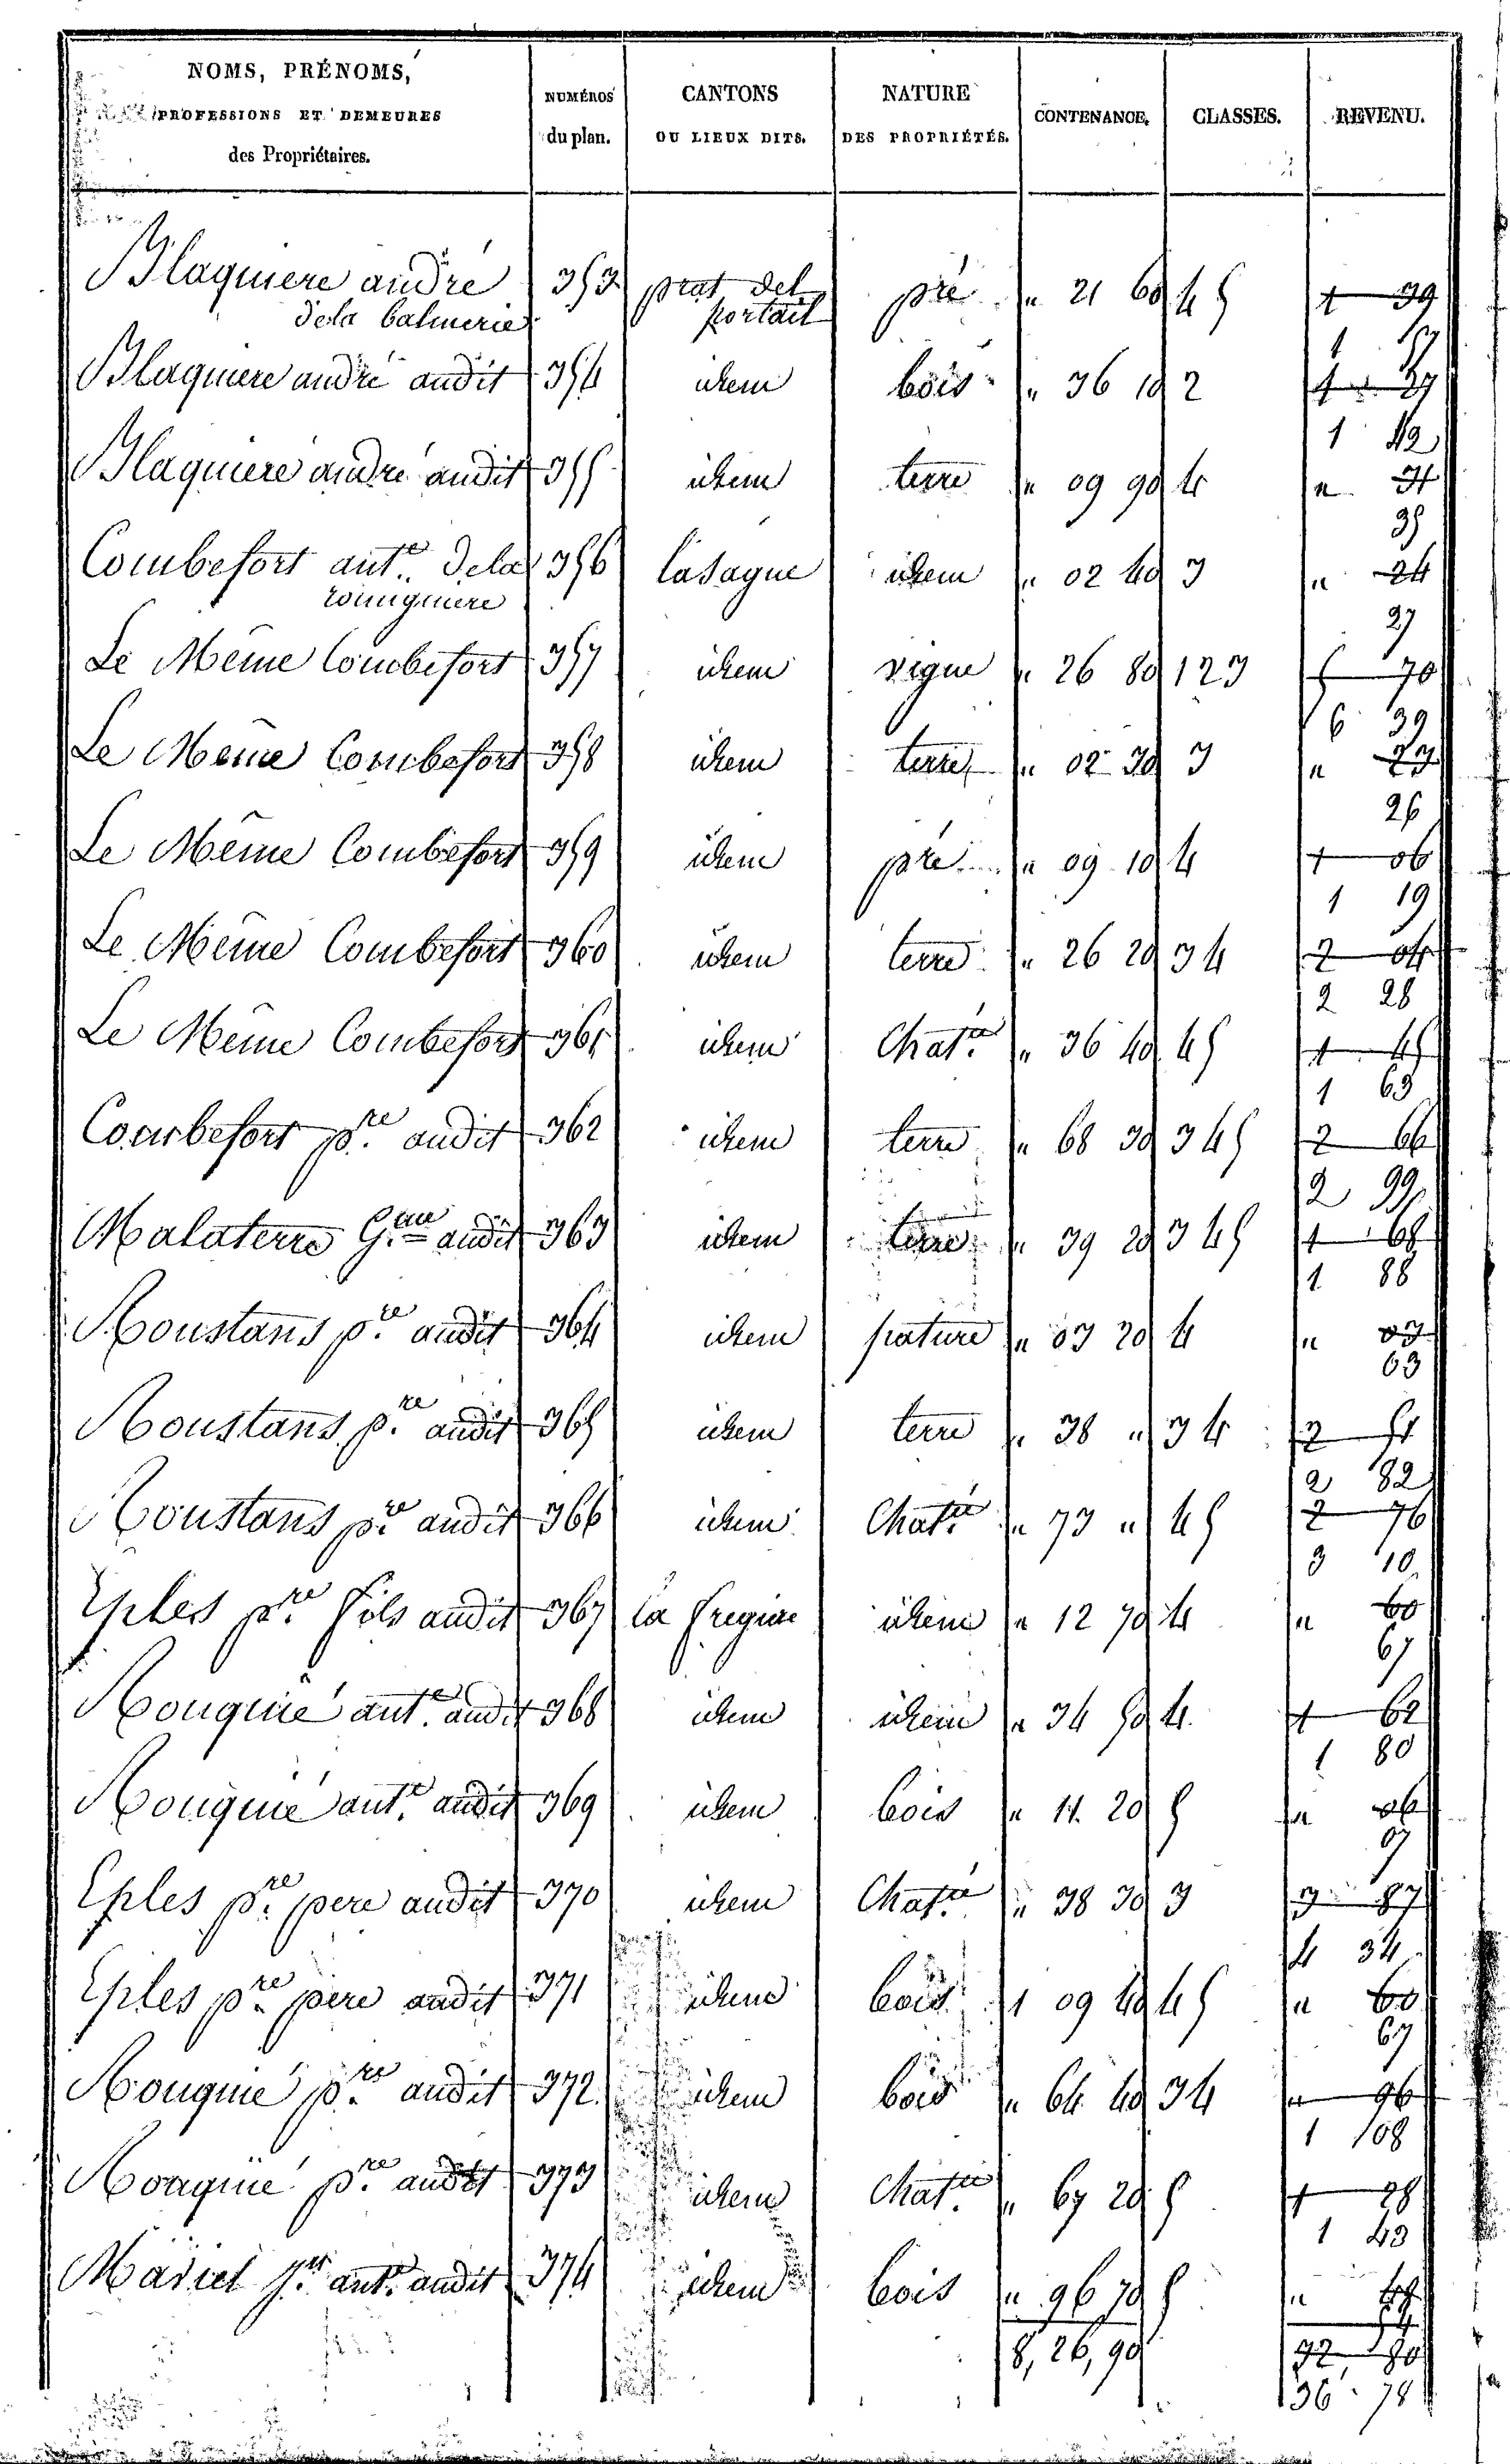 NOMS, PRÉNOMS, PROFESSIONS ET DEMEURES des Propriétaires. NUMÉROS du plan. CANTONS OU LIEUX DITS. NATURE DES PROPRIÉTÉS. CONTENANCE. CLASSES. REVENU.
Blaquiere andré 353 prat del pré " 21 60 4 5 1 39
dela balmerie portail
1 57
Blaquiere andré audit 354 idem bois " 36 10 2 1 27
1 42
Blaquiere andré audit 355 idem terre " 09 90 4 " 31
35
Combefort ant.e dela 356 lasagne idem " 02 40 3 " 24
27
Le Même Combefort 357 idem vigne " 26 80 1 2 3 5 70
6 39
Le Même Combefort 358 idem terre " 02 30 3 " 23
26
Le Même Combefort 359 idem pré " 09 10 4 1 06
1 19
Le Même Combefort 360 idem terre " 26 20 3 4 2 04
2 28
Le Même Combefort 361 idem Chat.ie " 36 40 4 5 1 45
1 63
Combefort p.re audit 362 idem terre " 68 30 3 4 5 2 66
2 99
Malaterre audit 363 idem terre " 39 20 3 4 5 1 68
1 88
Roustans p.re audit 364 idem pature " 03 20 4 " 03
03
Roustans p.re audit 365 idem terre " 38 " 3 4 2 51
2 82
Roustans p.re audit 366 idem Chat.ie " 73 " 4 5 2 76
3 10
Eples p.re fils audit 367 idem " 12 70 4 " 60
67
Rouquié ant.e audit 368 idem idem " 34 50 4 1 62
1 80
Rouquié ant.e audit 369 idem bois " 11 20 5 " 06
07
Eples p.re pere audit 370 idem Chat.ie " 38 30 3 3 87
4 34
Eples p.re pere audit 371 idem bois 1 09 40 4 5 " 60
67
Rouquié p.re audit 372 idem bois " 64 40 3 4 " 96
1 08
Rouquié p.re audit 373 idem Chat.ie " 67 20 5 1 28
1 43
ant.e audit 374 idem bois " 96 70 5 "
54
8, 26, 90 32 80
36 74